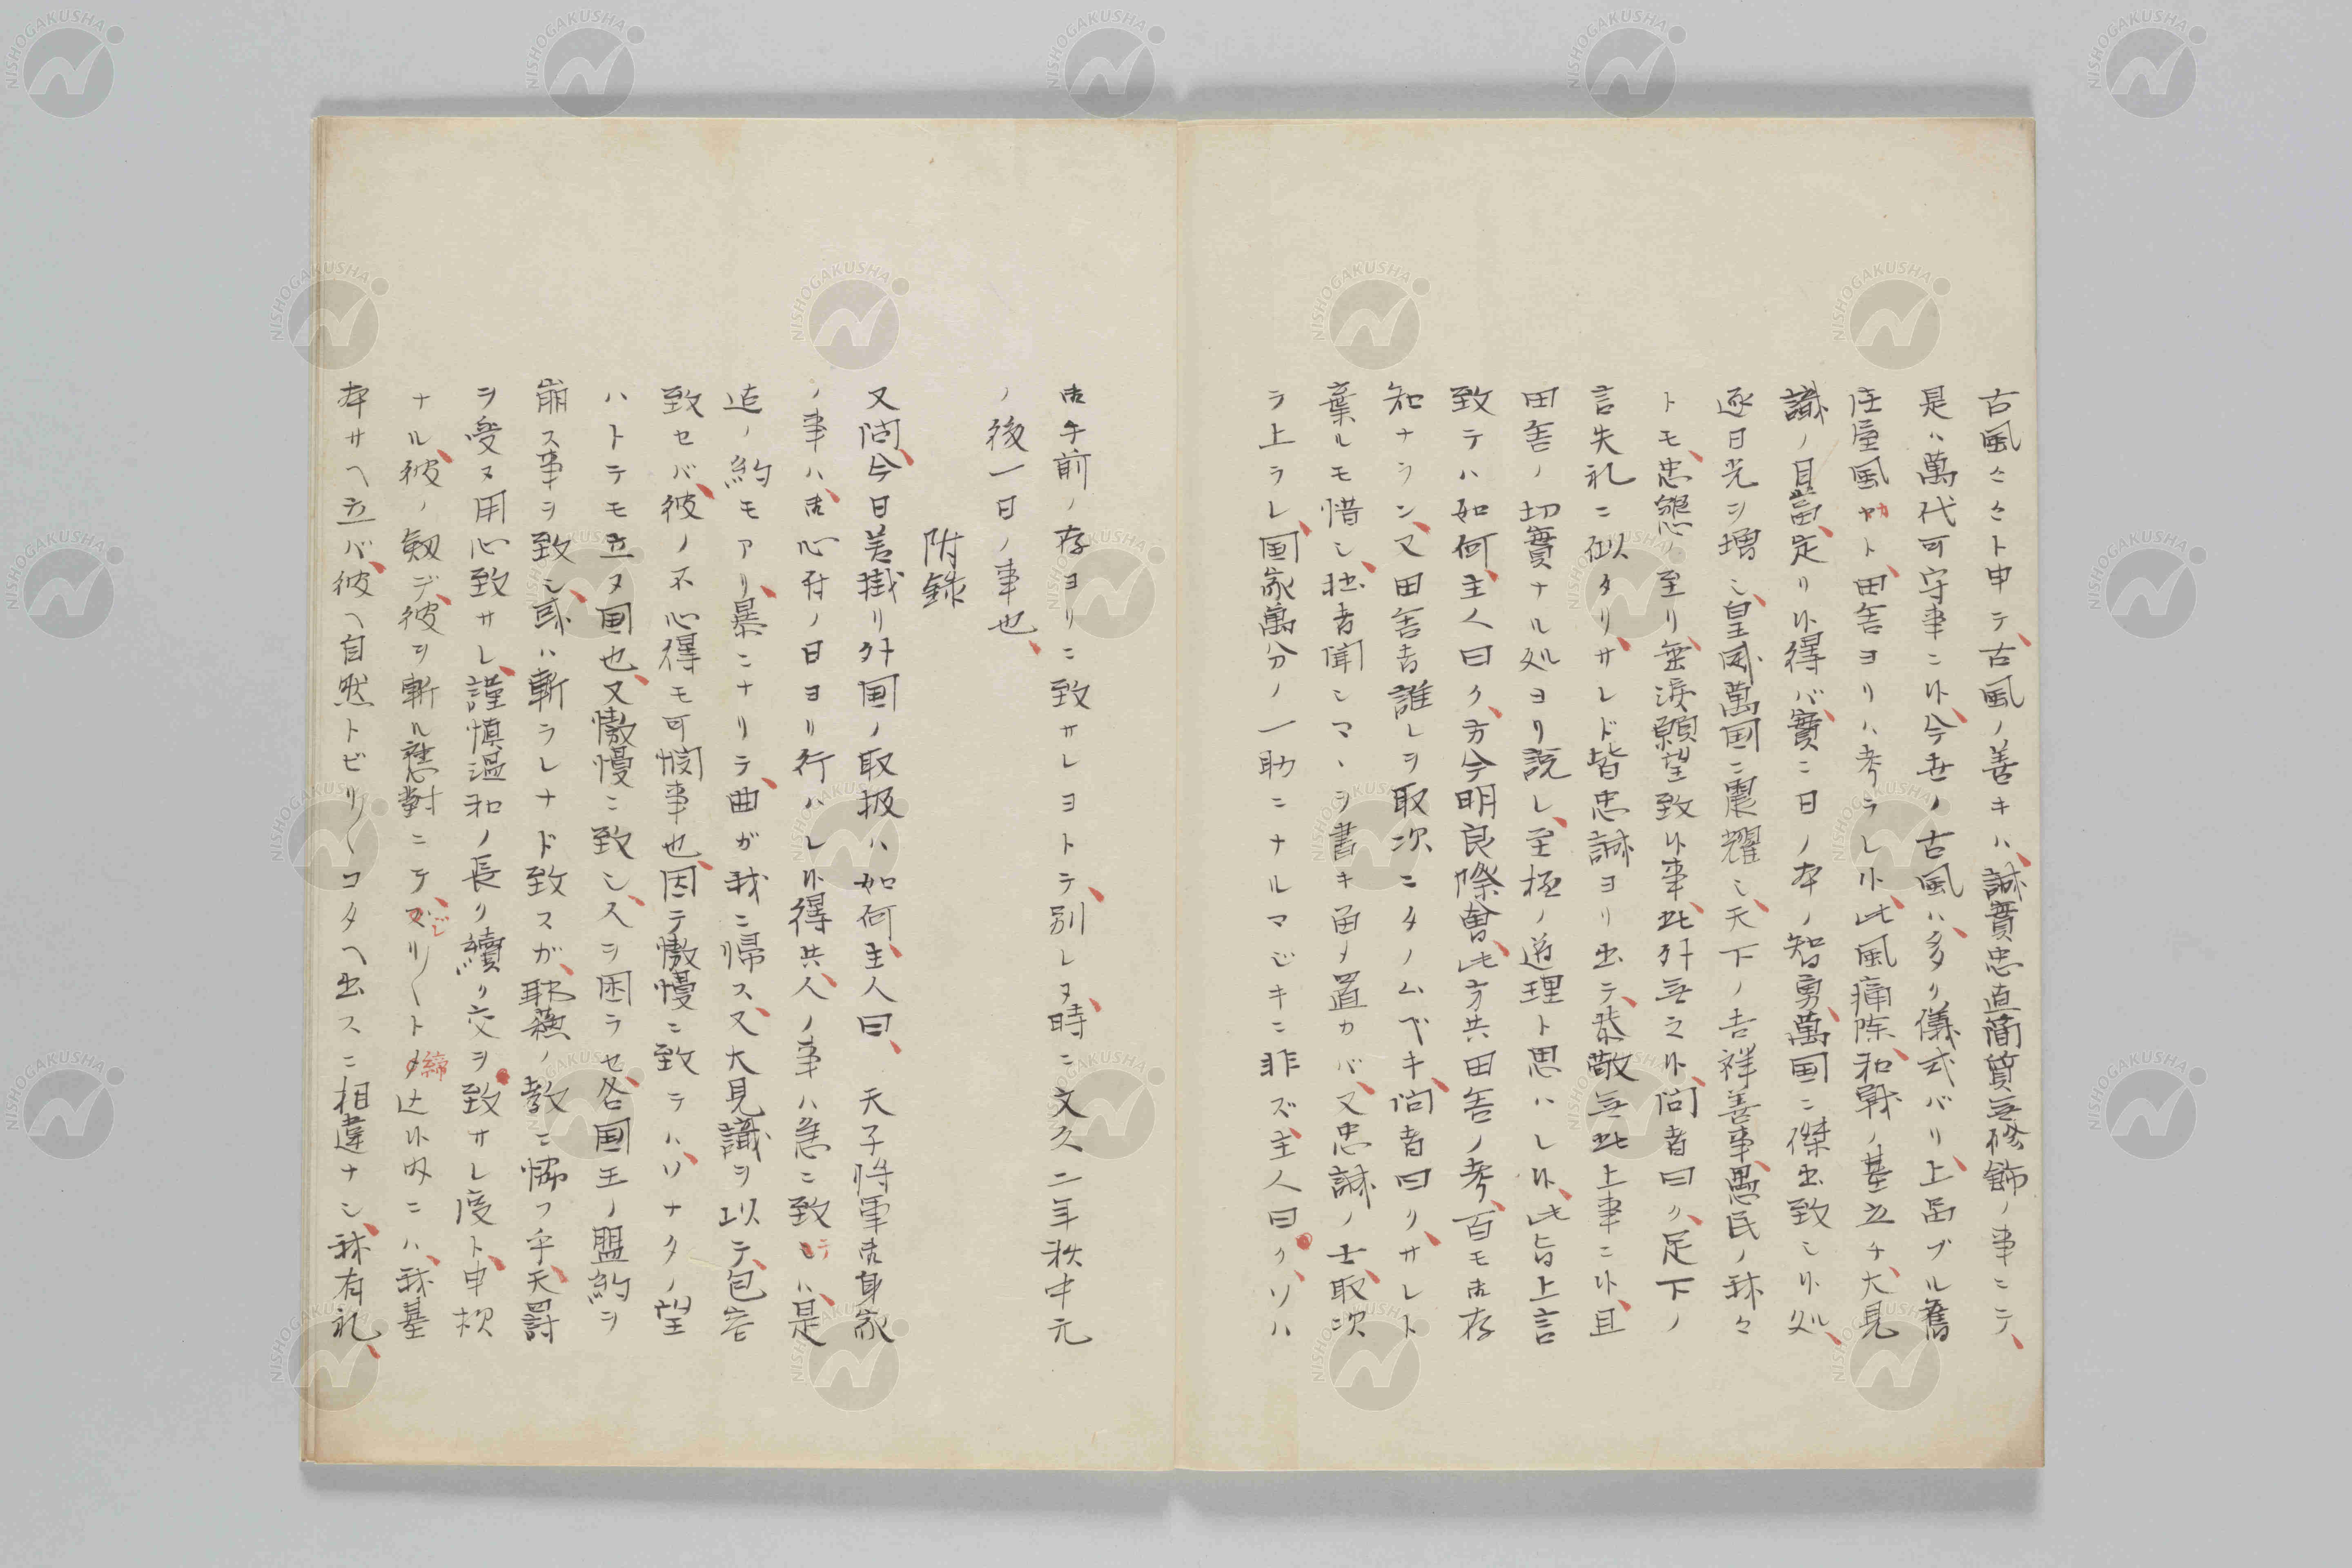 古風々々ト申テ、古風ノ善キハ、誠實忠直簡質無修飾ノ事ニテ、
是ハ萬代可守事ニ候、今世ノ古風ハ、多リ儀式バリ、上品ブル舊
庄屋風ヤト、田舎ヨリハ考ラレ候、此風痛除、和戦ノ基立チ、大見
識ノ目當、定リ候得バ、實ニ日ノ本ノ智勇、萬国ニ傑出致シ候処、
逐日光ヲ増シ、皇威萬国ニ震耀シ、天下ノ吉祥善事、愚民ノ我々
トモ、忠懇ノ至リ、垂涙願望致候事、此外無之候、問者曰ク、足下ノ
言失礼ニ似タリ、サレド皆忠誠ヨリ出テ、恭敬無此上事ニ候、且
田舎ノ切實ナル処ヨリ説レ、至極ノ道理ト思ハレ候、此旨上言
致テハ如何、主人曰ク、方今明良際會、此方共田舎ノ考、百モ御存
知ナラン、又田舎者誰レヲ取次ニタノムベキ、問者曰ク、サレト
棄ルモ惜シ、拙者聞シマヽヲ書キ留メ置カバ、又忠誠ノ士、取次
ラ上ラレ、国家萬分ノ一助ニナルマジキニ非ズ、主人曰ク、ソハ
御手前ノ存ヨリニ致サレヨトテ、別レヌ、時ニ文久二年秋中元
ノ後一日ノ事也、
附録
又問、今日差掛リ外国ノ取扱ハ如何、主人曰、天子将軍御身家
ノ事ハ、御心付ノ日ヨリ行ハレ候得共、人ノ事ハ急ニ致シテハ、是
迄ノ約モアリ、暴ニナリテ、曲ガ我ニ帰ス、又大見識ヲ以テ、包容
致セバ、彼ノ不心得モ可憫事也、因テ傲慢ニ致テハ、ソナタノ望
ハトテモ立ヌ国也、又傲慢ニ致シ、人ヲ困ラセ、各国王ノ盟約ヲ
崩ス事ヲ致シ、或ハ斬ラレナド致スガ、耶蘇ノ教ニ協フ乎、天罰
ヲ受ヌ用心致サレ、謹慎温和ノ長リ續リ交ヲ致サレ度ト、申様
ナル、彼ノ剱デ、彼ヲ斬ル應對ニテ、ズレリ〱ト締メ込候内ニハ、我基
本サヘ立バ、彼ヘ自然トビリ〱コタヘ出スニ相違ナシ、我有礼、